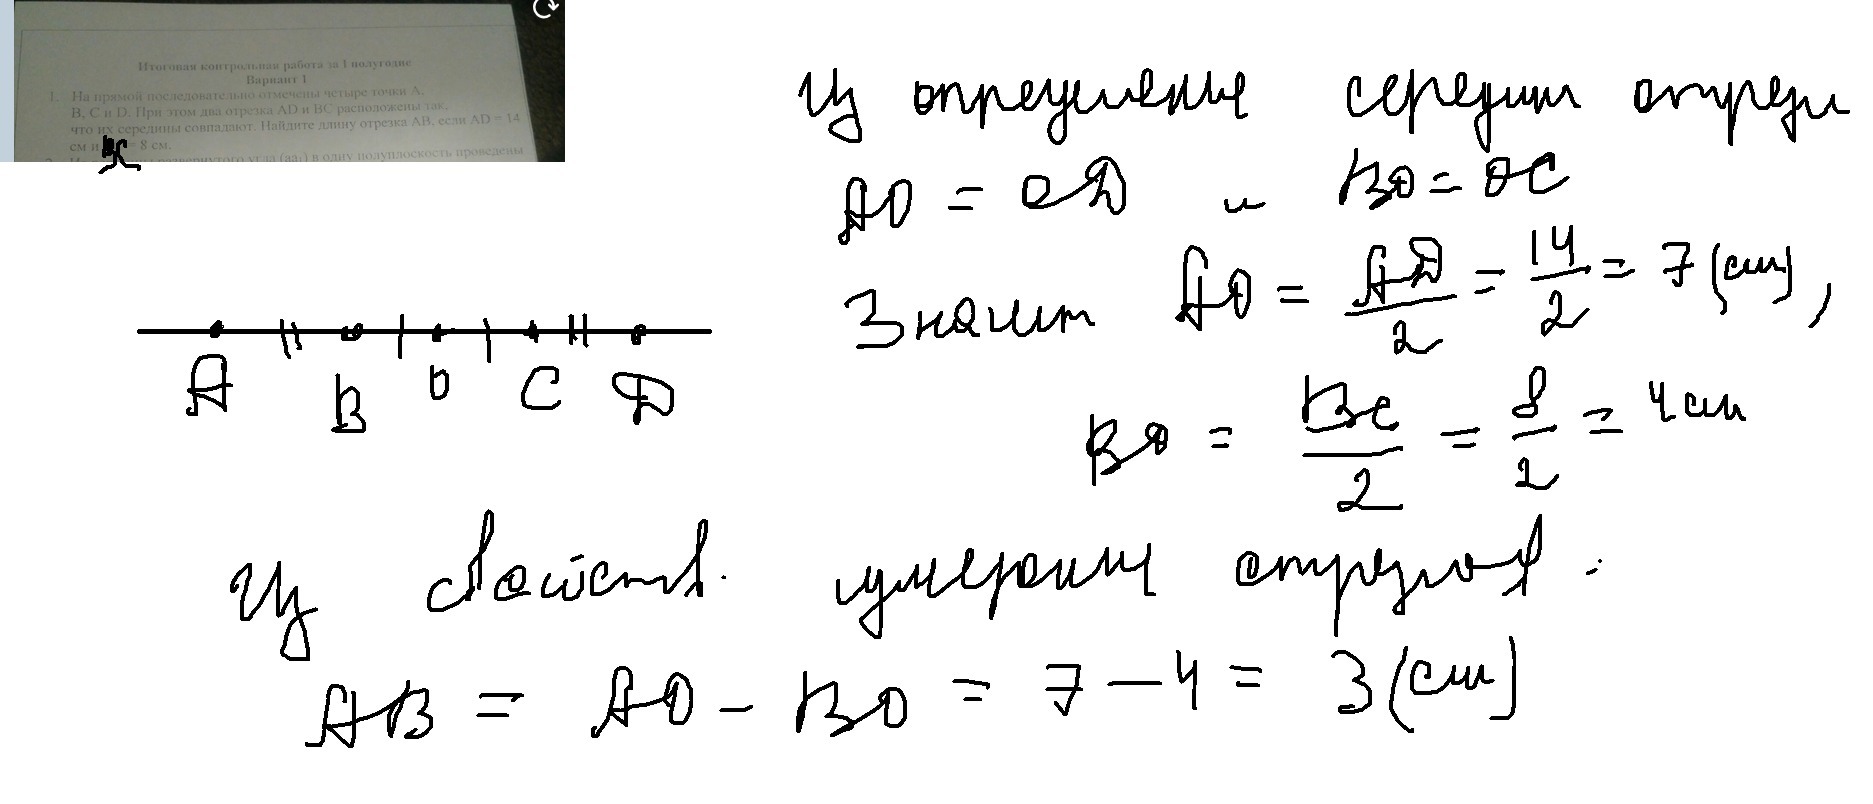 Итоговая контрольная работа за 1 полугодие
Вариант 1
1. На прямой последовательно отмечены четыре точки A,
B, C и D. При этом два отрезка AD и BC расположены так,
что их середины совпадают. Найдите длину отрезка AB, если AD = 14
см и BC = 8 см.
развернутого угла (aa₁) в одну полуплоскость проведены
A B O C D
Из определение середин отрезк
AO = OD и BO = OC
Значит AO = AD/2 = 14/2 = 7 (см),
BO = BC/2 = 8/2 = 4 см
Из свойств. измерение отрезков.
AB = AO - BO = 7 - 4 = 3 (см)